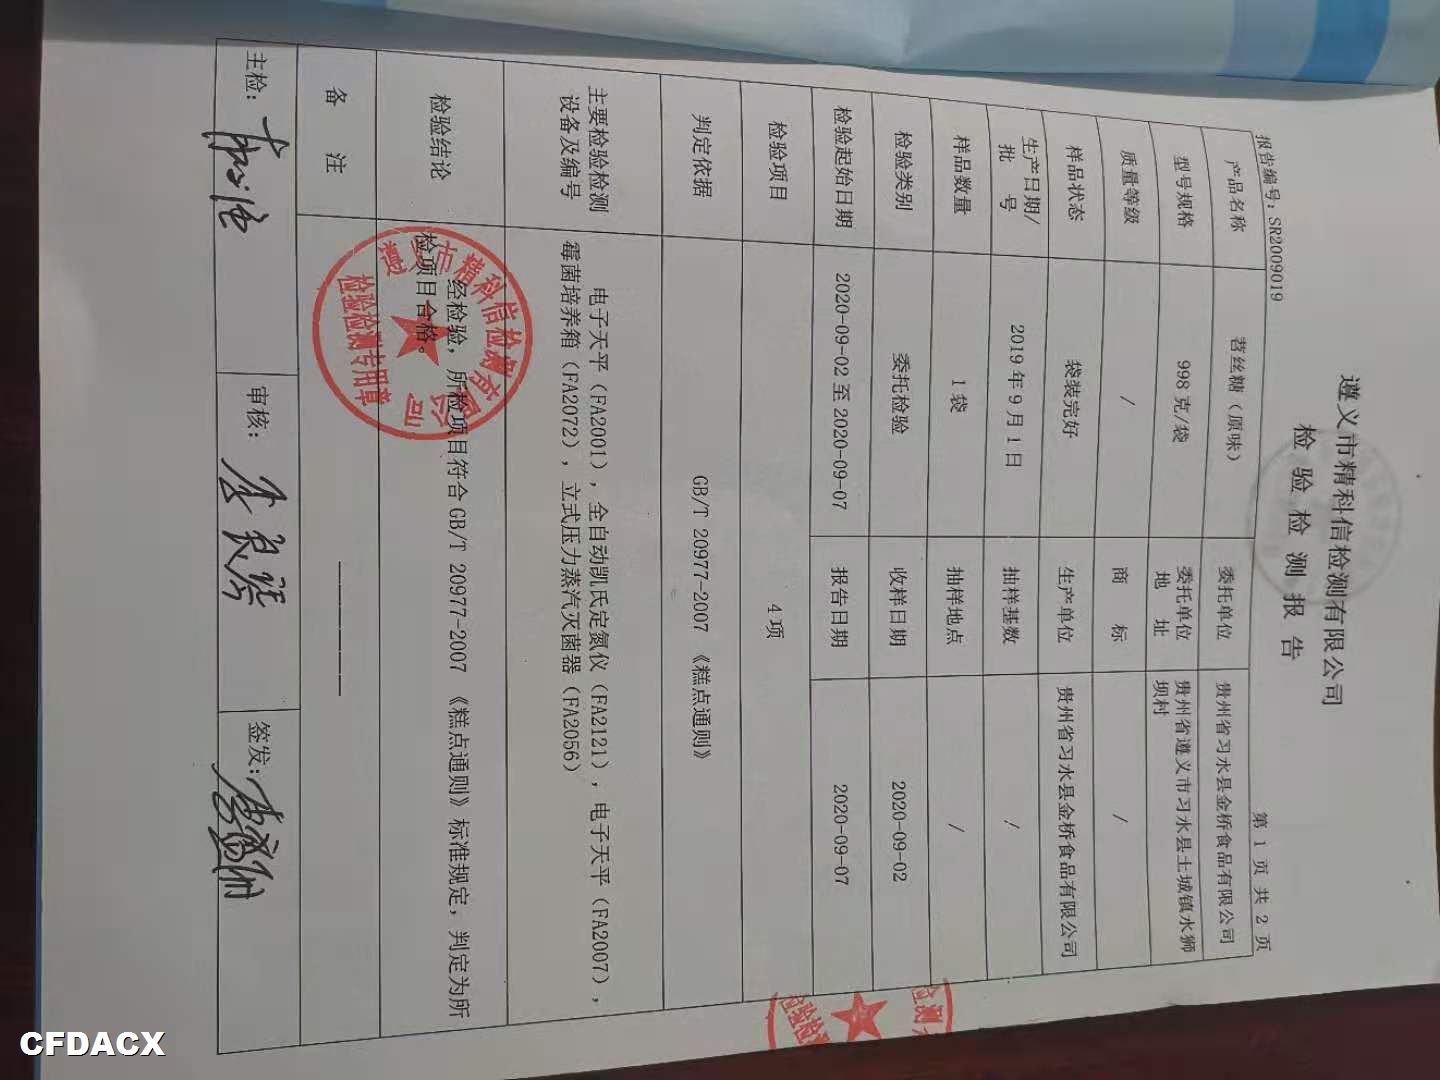 遵义市精科信检测有限公司
检 验 检 测 报 告
报告编号：SR2009019 第 1 页 共 2 页
产品名称 苕丝糖（原味） 委托单位 贵州省习水县金桥食品有限公司
型号规格 998 克/袋 委托单位 贵州省遵义市习水县土城镇水狮
地 址 坝村
质量等级 / 商 标 /
样品状态 袋装完好 生产单位 贵州省习水县金桥食品有限公司
生产日期/
批 号 2019 年 9 月 1 日 抽样基数 /
样品数量 1 袋 抽样地点 /
检验类别 委托检验 收样日期 2020-09-02
检验起始日期 2020-09-02 至 2020-09-07 报告日期 2020-09-07
检验项目 4 项
判定依据 GB/T 20977-2007 《糕点通则》
主要检验检测 电子天平（FA2001），全自动凯氏定氮仪（FA2121），电子天平（FA2007），
设备及编号 霉菌培养箱（FA2072），立式压力蒸汽灭菌器（FA2056）
检验结论 经检验，所检项目符合 GB/T 20977-2007 《糕点通则》标准规定，判定为所
检项目合格。
遵义市精科信检测有限公司
检验检测专用章
备 注 ——————
主检： 审核： 签发：
检测
检验检
CFDACX